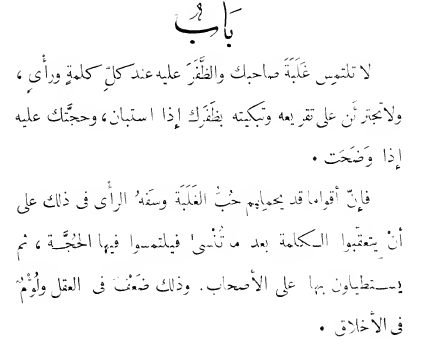 بَابٌ
لا تلتمِس غَلَبَةَ صاحبك والظَّفَرَ عليه عند كلِّ كلمةٍ ورأْىٍ ،
ولا تجترئَن على تقريعه وتبكيته بظَفَرك إذا استبان، وحجَّتك عليه
إذا وَضَحَت .
فإنّ أقواما قد يحملهم حُبُّ الغَلَبَة وسَفهُ الرأى فى ذلك على
أنْ يتعقَّبوا الكلمة بعد ما تُنْسىٰ فيلتمسوا فيها الحُجَّة ، ثم
يستطيلون بها على الأصحاب. وذلك ضَعْفٌ فى العقل ولُؤْمٌ
فى الأخلاق .